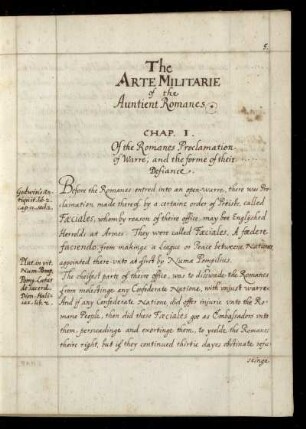 5.
The
ARTE MILITARIE
of the
Auntient Romanes.
CHAP. I.
Of the Romanes Proclamation
of Warre, and the forme of their
Defiance.
Before the Romanes entred into an open warre, there was Pro-
clamation made thereof by a certaine order of Priests, called
Fæciales, whom by reason of theire office, may bee Englyshed
Heralds at Armes. They were called Fæciales, A fœdere
faciendo from makinge a League or Peace betweene Nations
appointed there unto at first by Numa Pompilius.
The cheifest parte of theire office, was to disswade the Romanes
from molestinge any Confederate Nations, with unjust warre
And if any Confederate Nation did offer injurie unto the Ro-
mane People, then did these Fæciales goe as Embassadors unto
them, perswadinge and exortinge them, to yeelde the Romanes
theire right, but if they continued thirtie dayes obstinate refu
singe
Godwin's An-
tiquit. lib. 2.
cap. sect. 2.
Plat. in vit.
Num. Pomp.
Pomp. Laet.
de Sacerd.
Dion. Hali:
car. lib. 2.